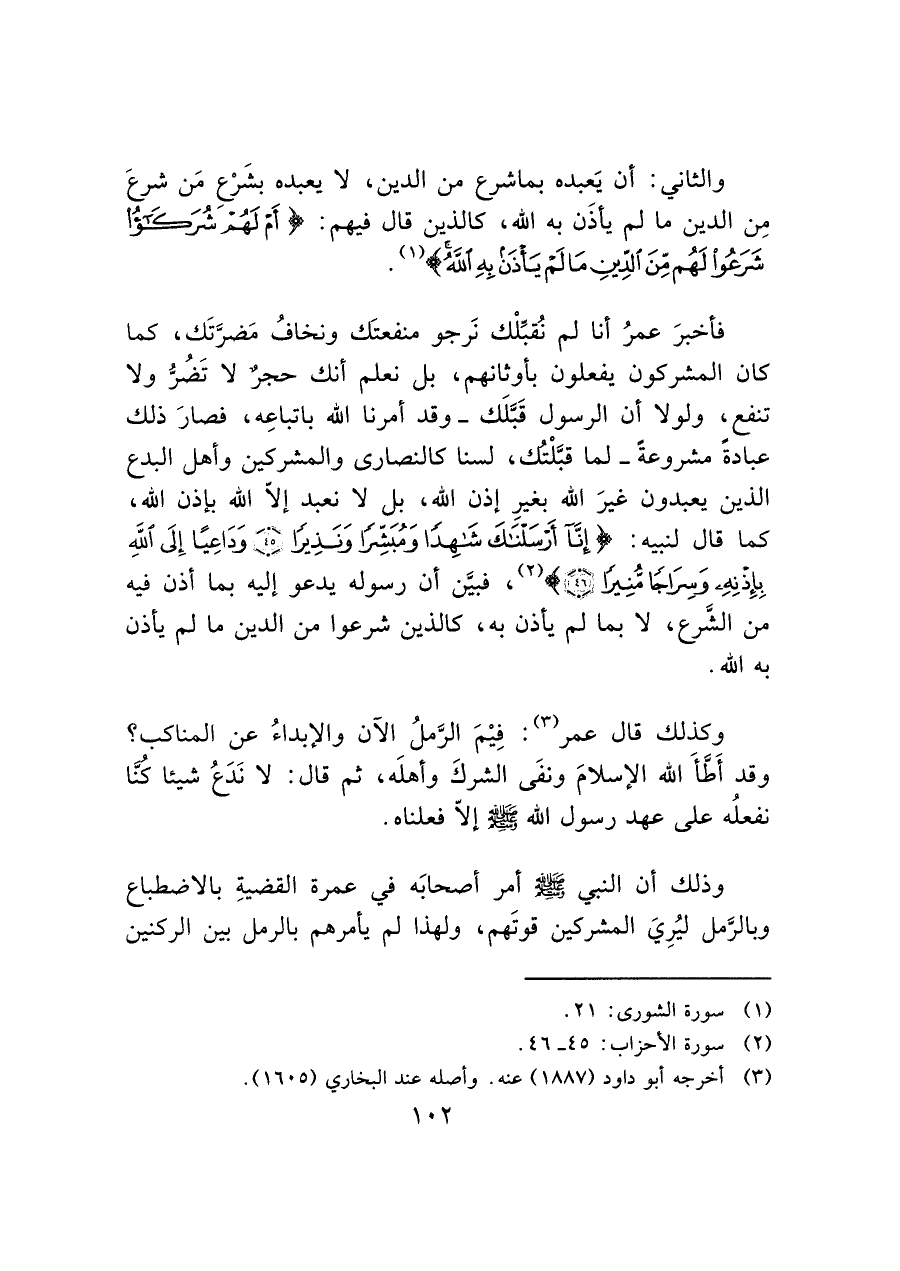 والثاني: أن يَعبده بماشرع من الدين، لا يعبده بشَرْعِ مَن شرعَ
مِن الدين ما لم يأذَن به الله، كالذين قال فيهم: ﴿ أَمۡ لَهُمۡ شُرَكَٰٓؤُاْ
شَرَعُواْ لَهُم مِّنَ ٱلدِّينِ مَا لَمۡ يَأۡذَنۢ بِهِ ٱللَّهُۚ﴾(١).
فأخبرَ عمرُ أنا لم نُقبِّلْك نَرجو منفعتَك ونخافُ مَضرَّتَك، كما
كان المشركون يفعلون بأوثانهم، بل نعلم أنك حجرٌ لا تَضُرُّ ولا
تنفع، ولولا أن الرسول قَبَّلَك ـ وقد أمرنا الله باتباعِه، فصارَ ذلك
عبادةً مشروعةً ـ لما قبَّلْتُك، لسنا كالنصارى والمشركين وأهل البدع
الذين يعبدون غيرَ الله بغيرِ إذن الله، بل لا نعبد إلاّ الله بإذن الله،
كما قال لنبيه: ﴿ إِنَّآ أَرۡسَلۡنَٰكَ شَٰهِدٗا وَمُبَشِّرٗا وَنَذِيرٗا ٤٥ وَدَاعِيًا إِلَى ٱللَّهِ
بِإِذۡنِهِۦ وَسِرَاجٗا مُّنِيرٗا ٤٦﴾(٢)، فبيَّن أن رسوله يدعو إليه بما أذن فيه
من الشَّرع، لا بما لم يأذن به، كالذين شرعوا من الدين ما لم يأذن
به الله.
وكذلك قال عمر(٣): فِيْمَ الرَّملُ الآن والإبداءُ عن المناكب؟
وقد أَطَّأَ الله الإسلامَ ونفَى الشركَ وأهلَه، ثم قال: لا نَدَعُ شيئا كُنَّا
نفعلُه على عهد رسول الله ﷺ إلاّ فعلناه.
وذلك أن النبي ﷺ أمر أصحابَه في عمرة القضيةِ بالاضطباع
وبالرَّمل ليُرِيَ المشركين قوتَهم، ولهذا لم يأمرهم بالرمل بين الركنين
(١) سورة الشورى: ٢١.
(٢) سورة الأحزاب: ٤٥ـ ٤٦.
(٣) أخرجه أبو داود (١٨٨٧) عنه. وأصله عند البخاري (١٦٠٥).
١٠٢